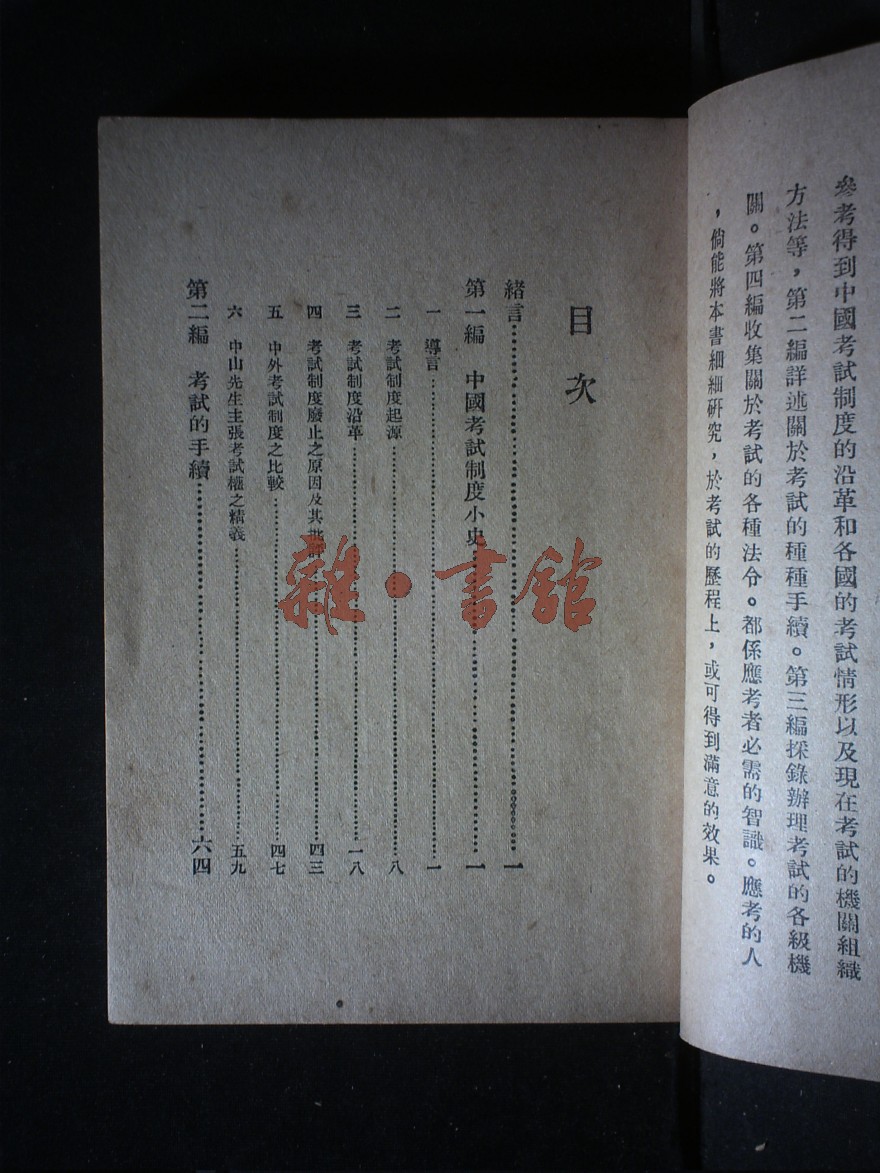 參考得到中國考試制度的沿革和各國的考試情形以及現在考試的機關組織
方法等，第二編詳述關於考試的種種手續。第三編採錄辦理考試的各級機
關。第四編收集關於考試的各種法令。都係應考者必需的智識。應考的人
，倘能將本書細細研究，於考試的歷程上，或可得到滿意的效果。
目次
緒言……一
第一編　中國考試制度小史……一
一　導言……一
二　考試制度起源……八
三　考試制度沿革……一八
四　考試制度廢止之原因及其批評……四三
五　中外考試制度之比較……四七
六　中山先生主張考試權之精義……五九
第二編　考試的手續……六四
雜·書館